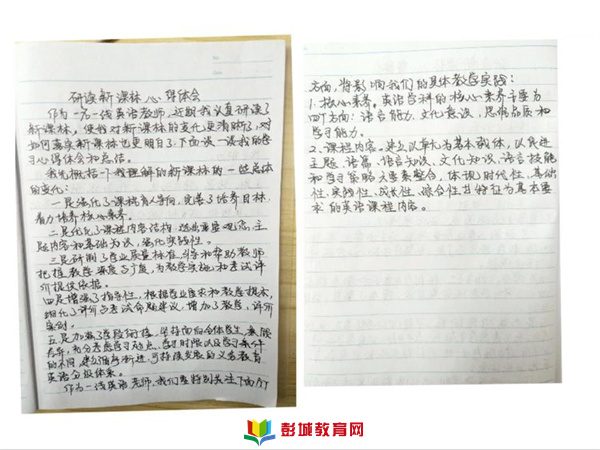 研读新课标心得体会
作为一名一线英语教师,近期我认真研读了
新课标,使我对新课标的变化更清晰了,对
如何落实新课标也更明白了,下面谈一谈我的学
习心得体会和总结。
我先概括一下我理解的新课标的一些总体
的变化:
一是强化了课程育人导向,完善了培养目标,
着力培养核心素养。
二是优化了课程内容结构,主
题内容和基础知识,强化实践性。
三是研制了学业质量标准,引导和帮助教师
把握教学深度与广度,为教学实施和考试评
价提供依据。
四是增强了指导性,根据学业要求和教学提示,
细化了评价与考试命题建议,增加了教学、评价
案例。
五是加强了学段衔接,坚持面向全体学生,兼顾
差异,充分考虑学习起点、学习时限以及学习条件
的不同,建立循序渐进、可持续发展的义务教育
英语分级体系。
作为一线英语老师,我们要特别关注下面几个
方向,将影响我们的具体教学实践:
1.核心素养。英语学科的核心素养主要为
四个方向:语言能力、文化意识、思维品质和
学习能力。
2.课程内容。建立以单元为基本载体,以促进
主题、语篇、语言知识、文化知识、语言技能
和学习策略六要素整合,体现时代性、基础
性、实践性、成长性、综合性五特征为基本要
求的英语课程内容。
彭城教育网